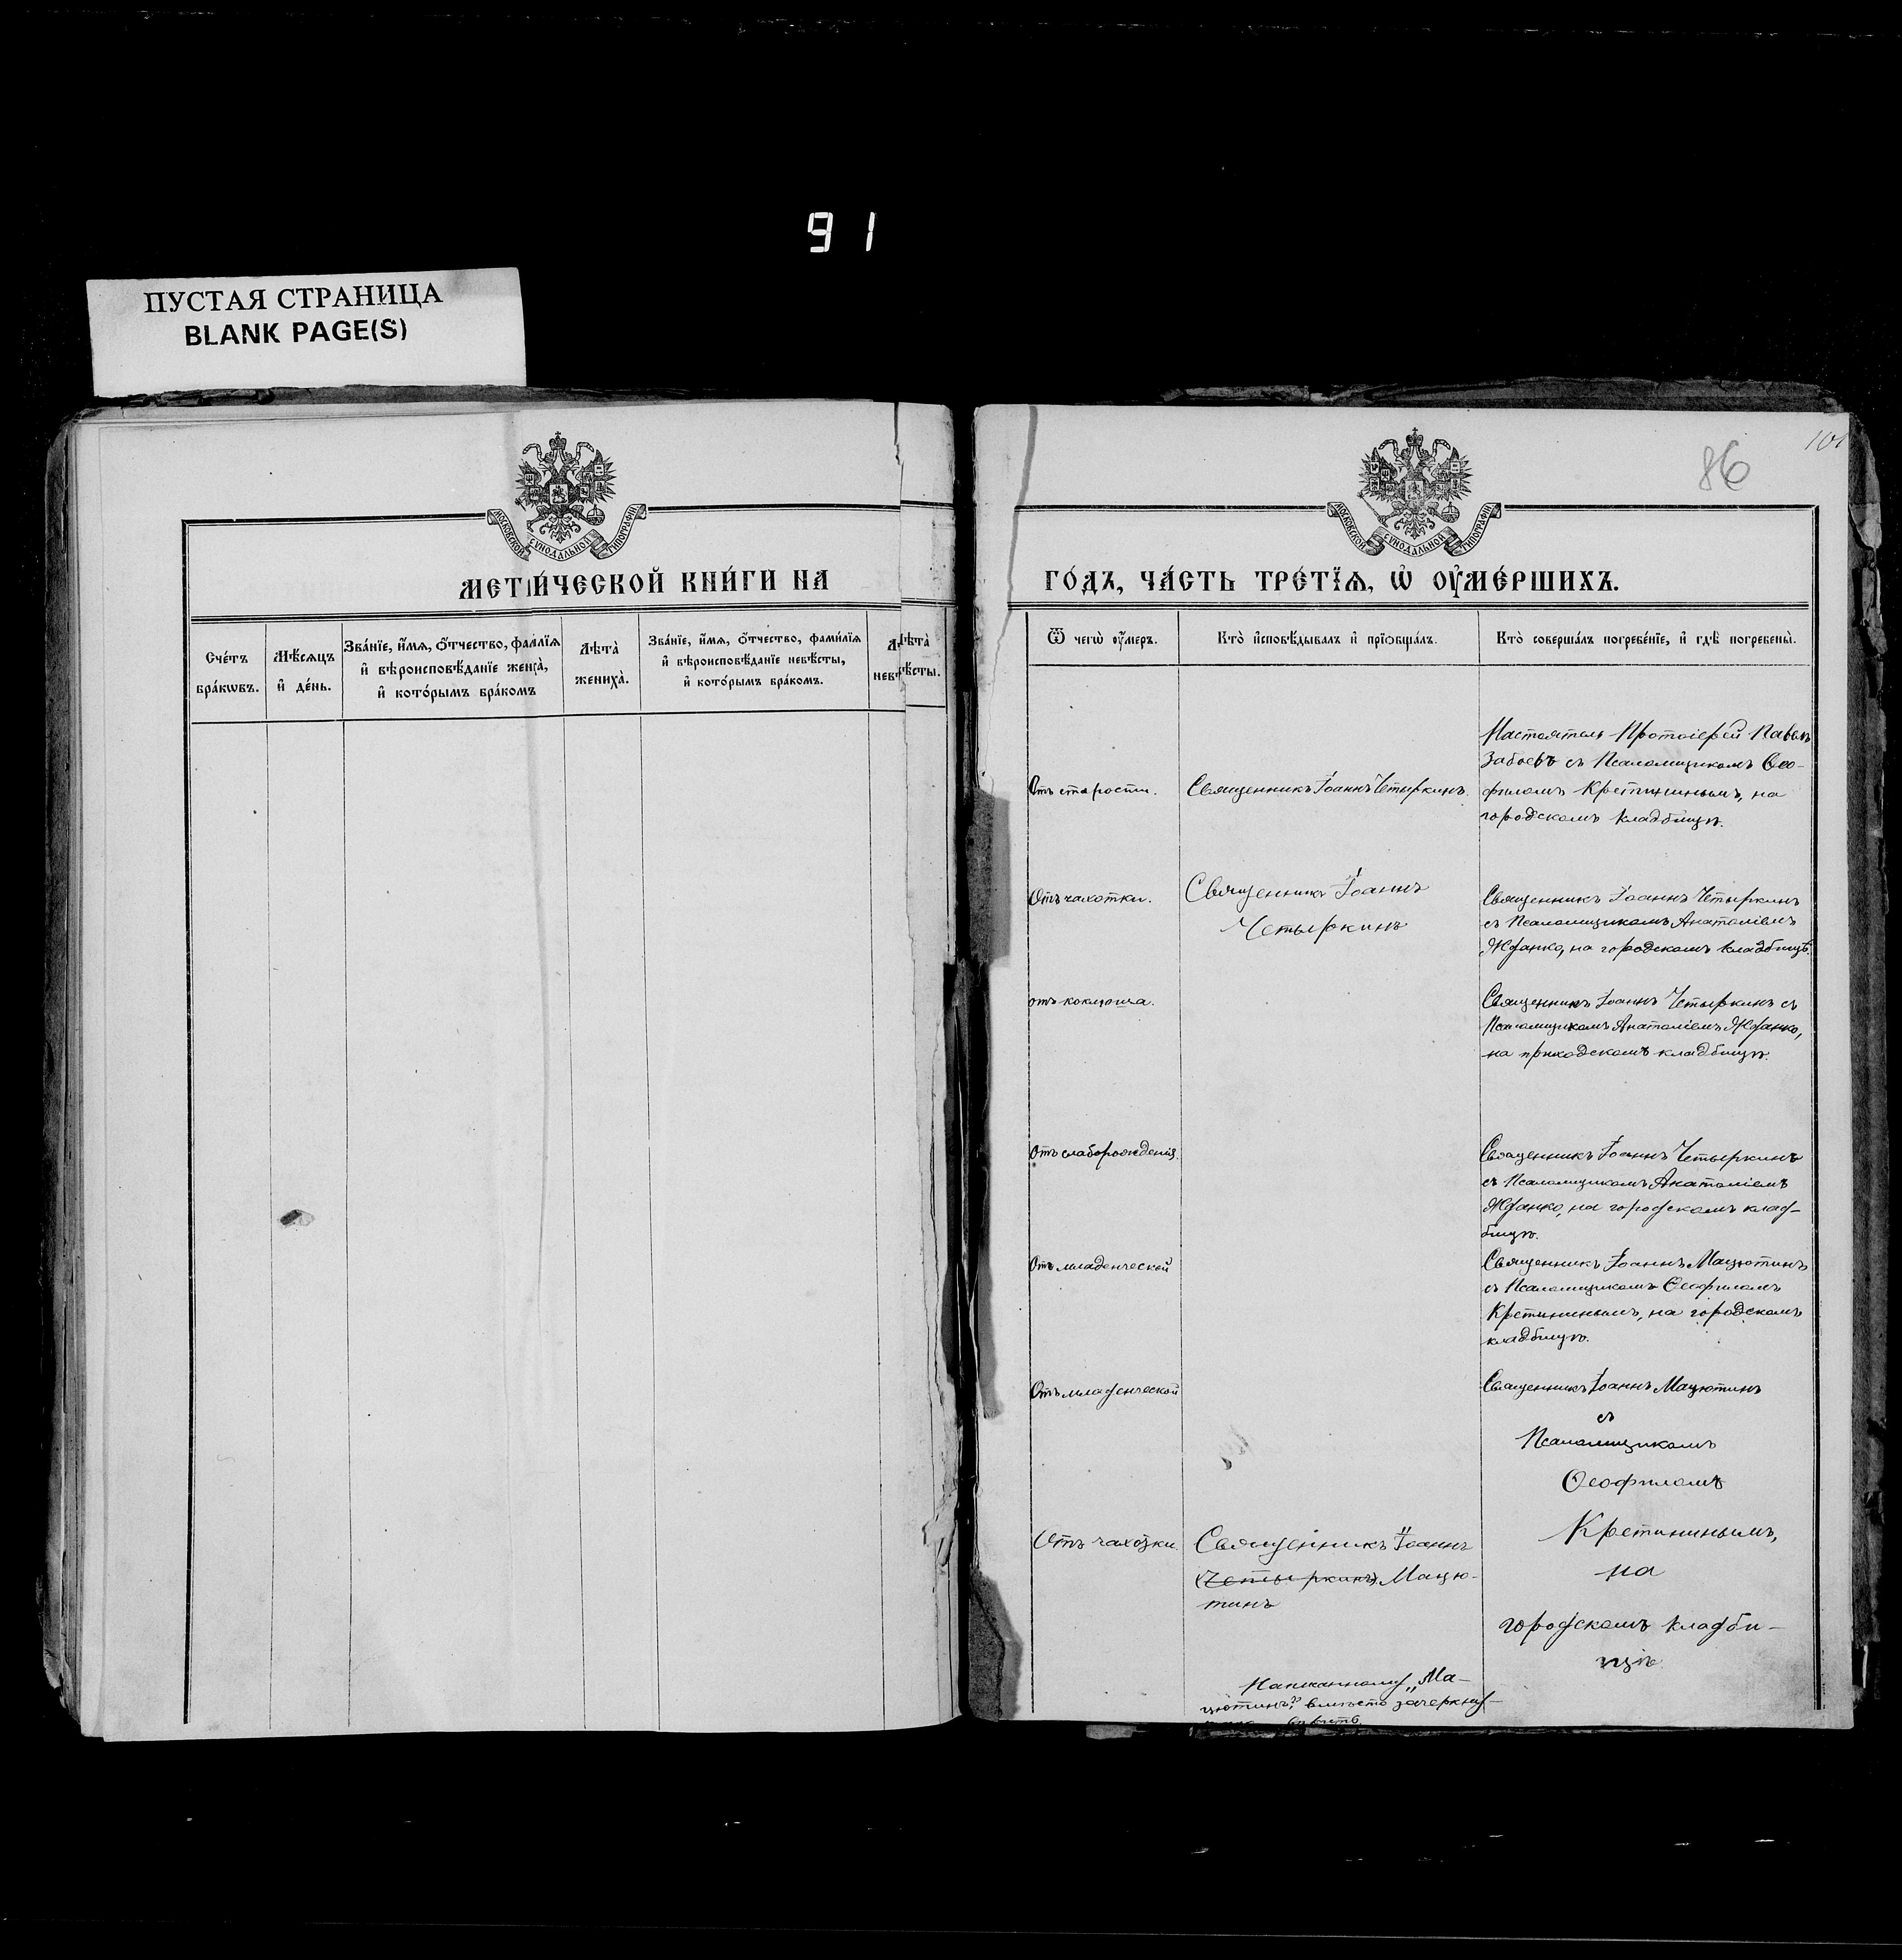 91
ПУСТАЯ СТРАНИЦА
BLANK PAGE(S)
МОСКОВСКОЙ СУНОДАЛЬНОЙ ТИПОГРАФІИ
МЕТРИ́ЧЕСКОЙ КНИ́ГИ НА
Сче́тъ бра́кωвъ.
Мѣ́сяцъ и҆ де́нь.
Зва́нїе, и҆́мѧ, ѻ҆́тчество, фамилїѧ
и҆ вѣроисповѣ́данїе жениха̀,
и҆ кото́рымъ бра́комъ
Лѣта̀ жениха̀.
Зва́нїе, и҆́мѧ, ѻ҆́тчество, фами́лїѧ
и҆ вѣроисповѣ́данїе невѣ́сты,
и҆ кото́рымъ бра́комъ.
Лѣта̀ невѣ́сты.
86
101
МОСКОВСКОЙ СУНОДАЛЬНОЙ ТИПОГРАФІИ
ГО́ДЪ, ЧА́СТЬ ТРЕ́ТЇѦ, Ѡ҆ ОУ҆МЕ́РШИХЪ.
Ѿ чегѡ̀ ᲂу҆́меръ.
Кто̀ и҆сповѣ́дывалъ и҆ прїѻбща́лъ.
Кто̀ соверша́лъ погребе́нїе, и҆ гдѣ̀ погребены̀.
Отъ старости.
Священникъ Іоаннъ Четыркинъ.
Настоятель Протоіерей Павелъ
Забоевъ съ Псаломщикомъ Ѳео-
филомъ Крестининымъ, на
городскомъ кладбищѣ.
Отъ чахотки.
Священникъ Іоаннъ
Четыркинъ
Священникъ Іоаннъ Четыркинъ
съ Псаломщикомъ Анатоліемъ
Жданко, на городскомъ кладбищѣ.
отъ коклюша.
Священникъ Іоаннъ Четыркинъ съ
Псаломщикомъ Анатоліемъ Жданко,
на приходскомъ кладбищѣ.
Отъ слаборожденія.
Священникъ Іоаннъ Четыркинъ
съ Псаломщикомъ Анатоліемъ
Жданко, на городскомъ клад-
бищѣ.
Отъ младенческой
Священникъ Іоаннъ Мацютинъ
съ Псаломщикомъ Ѳеофиломъ
Крестининымъ, на городскомъ
кладбищѣ.
Отъ младенческой
Священникъ Іоаннъ Мацютинъ
съ
Псаломщикомъ
Ѳеофиломъ
Крестининымъ,
на
городскомъ кладби-
щѣ
Отъ чахотки.
Священникъ Іоаннъ
(Четыркинъ) Мацю-
тинъ
Написанному „Ма-
цютинъ" вмѣсто зачеркну-
вѣрить.